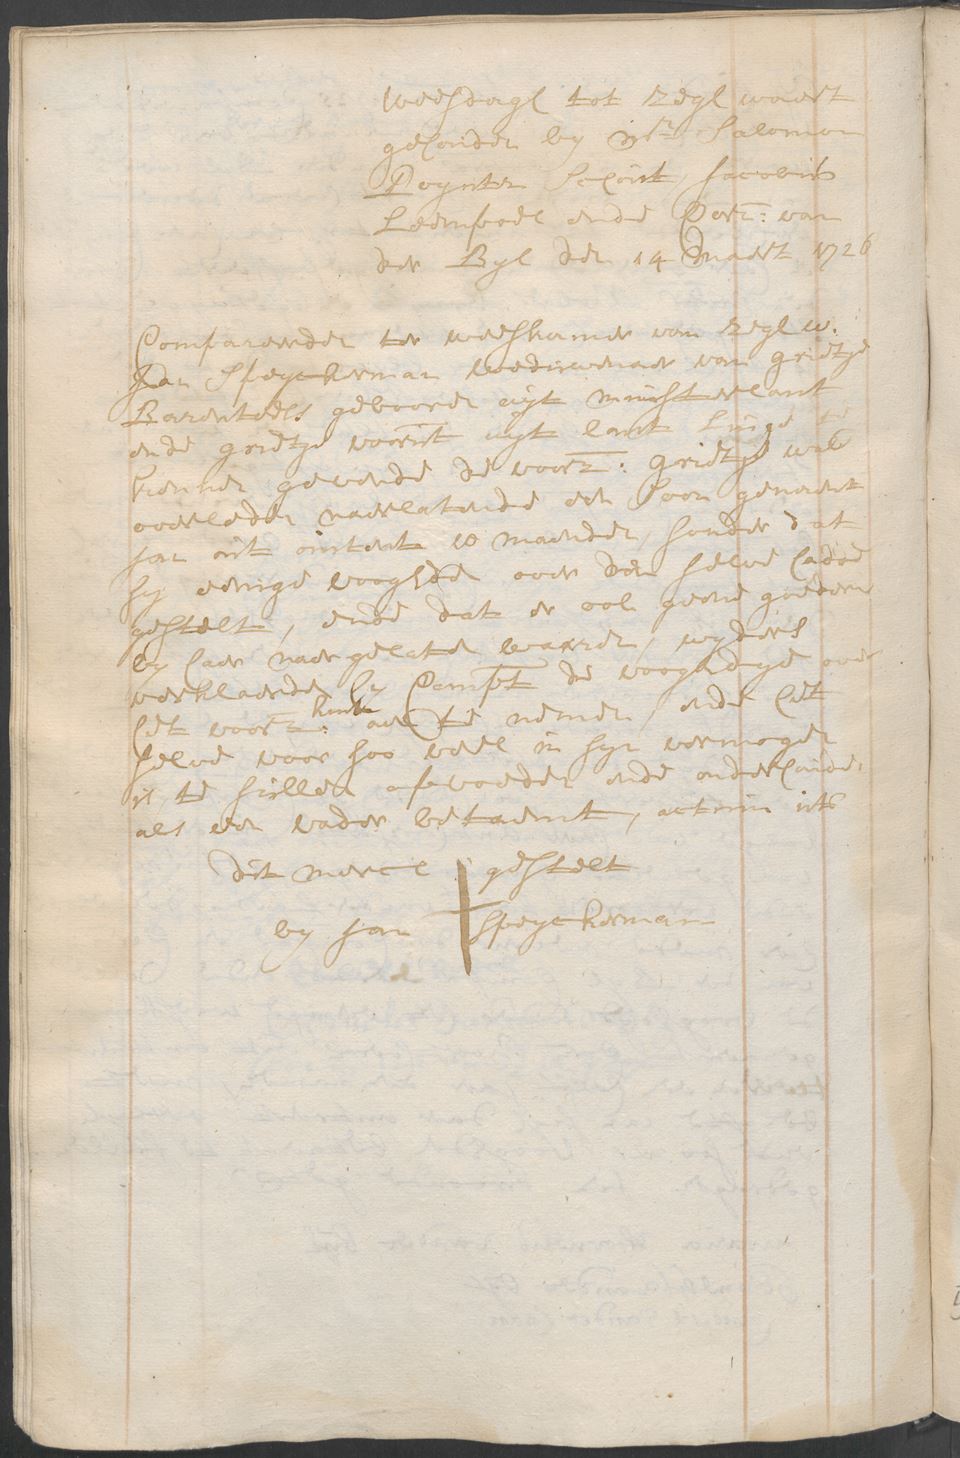 weesdagh tot Zegl waert
gehouden by Mr Salomon
Poynter Schout, Jacobus
Leempoel ende Corn: van
der Byl den 14 maert 1726
Compareerden ter weeskamer van Zegl w.
Jan Speyckerman weduwenaer van grietje
Barentels geboore uyt munsterlant
ende grietje voornt uyt lant
gewende de voorz: grietje was
overleden naerlatende een soon genaemt
Jan out omtrent 10 maenden, sonder dat
hy eenige vooghden over den selve hadde
gestelt, ende dat er ook geene goederen
by haer naergelaten waren, wyders
verklaerde hy Compt de vooghdye over
het voorz: kint aen te nemen, ende het
selve voor soo veel in syn vermogen
is, te sullen opvoeden ende onderhouden
als een vader betaemt, actum uts
Dit merck gestelt
by Jan Speyckerman